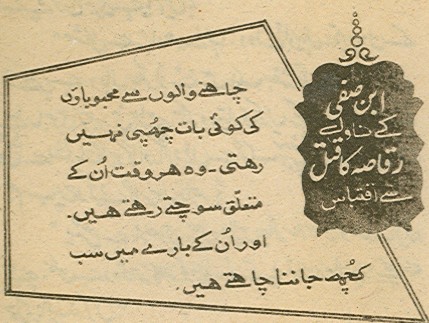 ابن صفی
کے ناول
رقاصہ کا قتل
سے اقتباس
چاہنے والوں سے محبوباؤں
کی کوئی بات چھپی نہیں
رہتی۔ وہ ہر وقت اُن کے
متعلّق سوچتے رہتے ہیں۔
اور اُن کے بارے میں سب
کچھ جاننا چاہتے ہیں۔